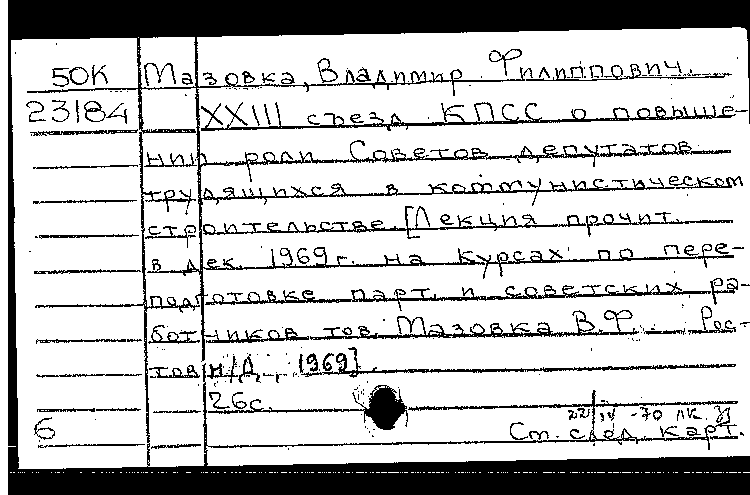 50К Мазовка, Владимир Филиппович.
23184 XXIII съезд КПСС о повыше-
нии роли Советов депутатов
трудящихся в коммунистическом
строительстве. [Лекция прочит.
в дек. 1969г. на курсах по пере-
подготовке парт. и советских ра-
ботников тов. Мазовка В.Ф. Рос-
тов н/Д, 1969].
26с.
22/IV -70 лк.
б См. след. карт.